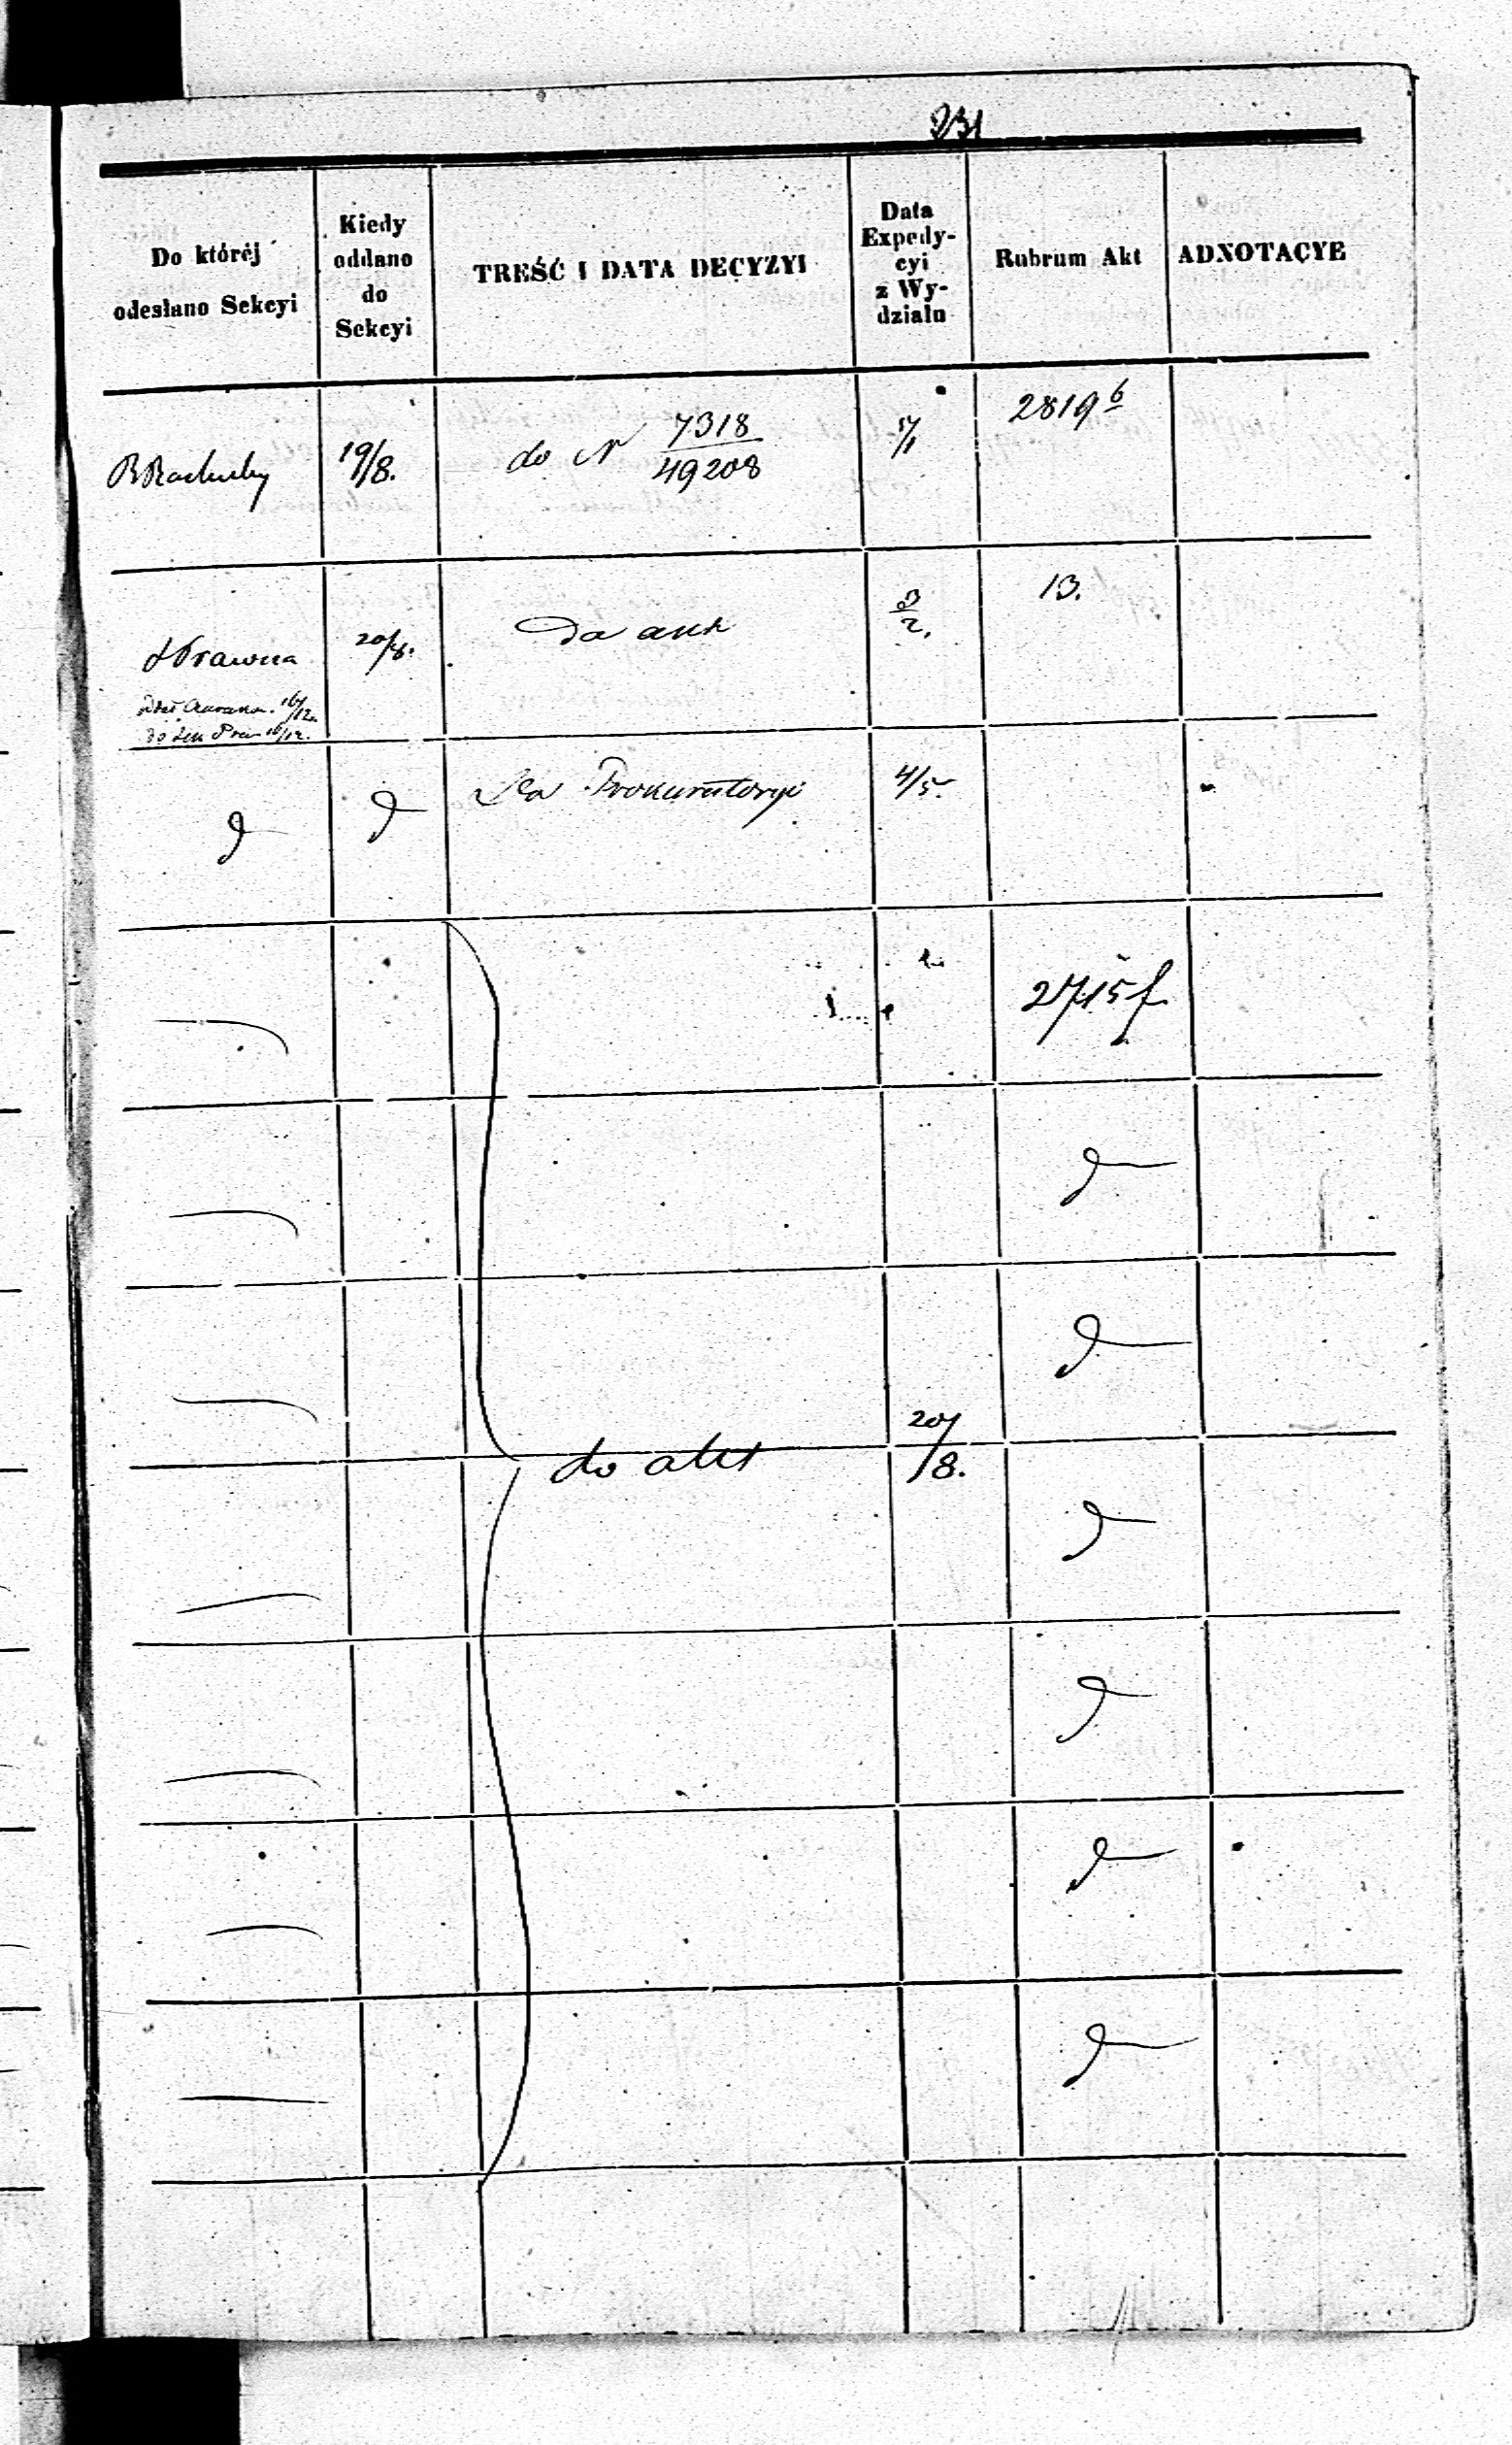 231
Do któréj
odesłano Sekcyi
Kiedy
oddano
do
Sekcyi
TREŚĆ I DATA DECYZYI
Data
Expedy-
cyi
z Wy-
działu
Rubrum Akt
ADNOTACYE
19/8.
do N 7318
49208
2819 b
Prawna
20/8.
Da akt
3/2.
13.
16/12.
16/12.
Prokuratoryi
4/5.
2715 f
do akt
20/8.